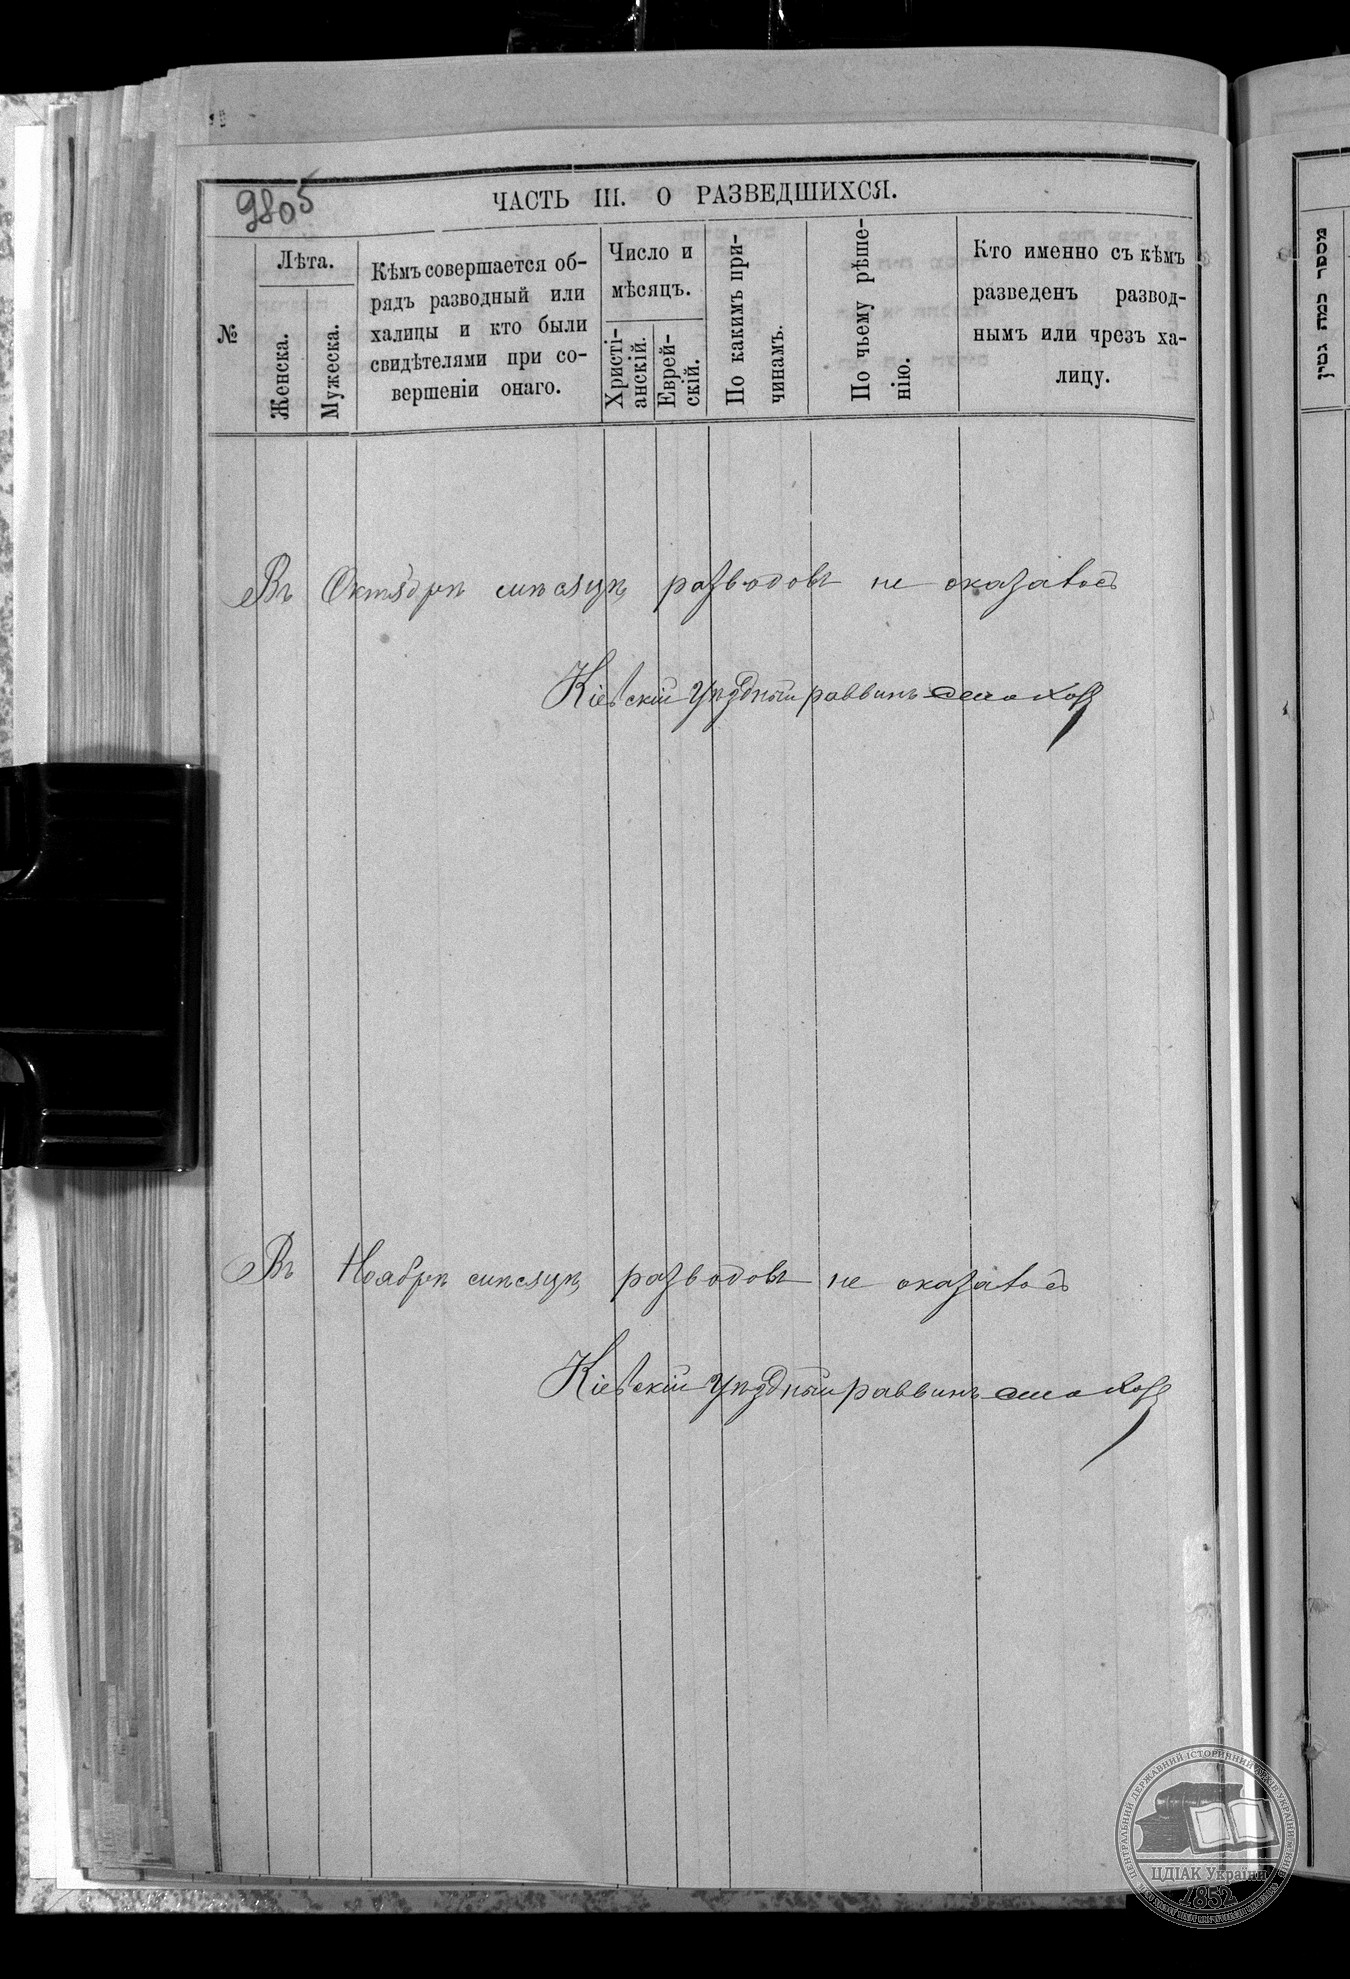 9805
ЧАСТЬ III. О РАЗВЕДШИХСЯ.
№
Лѣта.
Женска.
Мужеска.
Кѣмъ совершается об-
рядъ разводный или
халицы и кто были
свидѣтелями при со-
вершеніи онаго.
Число и
мѣсяцъ.
Христі-
анскій.
Еврей-
скій.
По какимъ при-
чинамъ.
По чьему рѣше-
нію.
Кто именно съ кѣмъ
разведенъ развод-
нымъ или чрезъ ха-
лицу.
Въ Октябрѣ мѣсяцѣ разводовъ не оказалось
Кіевскій Уѣздный раввинъ
Въ Ноябрѣ мѣсяцѣ разводовъ не оказалось
Кіевскій Уѣздный раввинъ
מספר כמה גטין
ЦЕНТРАЛЬНИЙ ДЕРЖАВНИЙ ІСТОРИЧНИЙ АРХІВ УКРАЇНИ
ЦДІАК України
1852